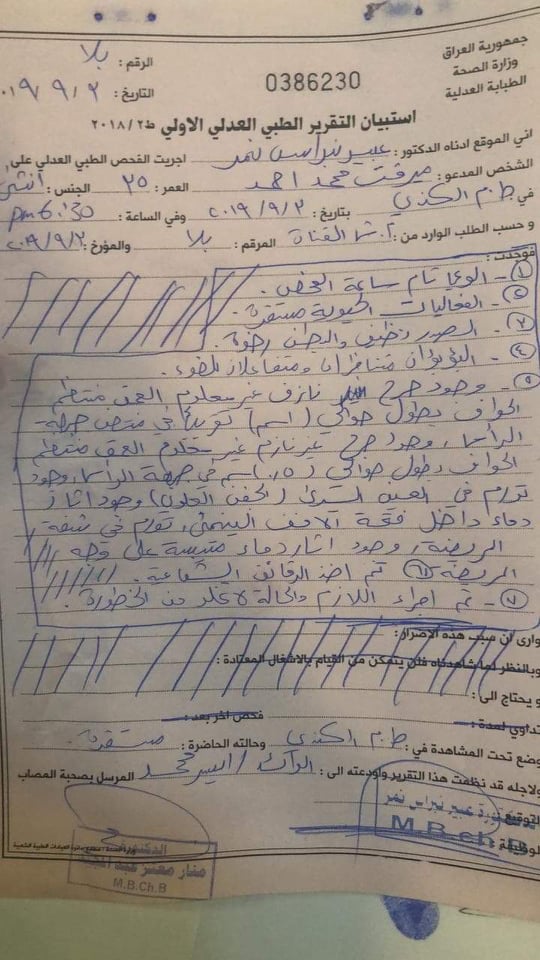 جمهورية العراق
وزارة الصحة
الطبابة العدلية
0386230
الرقم : بلا
التاريخ : ٢٠١٩/٩/٢
استبيان التقرير الطبي العدلي الاولي ط٢٠١٨/٢
اني الموقع ادناه الدكتور : عبير نبراس نمر اجريت الفحص الطبي العدلي على
الشخص المدعو : ميرفت محمد احمد العمر : ٢٥ الجنس : أنثى
في ط.م الكندي بتاريخ : ٢٠١٩/٩/٢ وفي الساعة : ٦:٣٠ pm
و حسب الطلب الوارد من : م. ش القناة المرقم : بلا والمؤرخ : ٢٠١٩/٩/٢
فوجدت :
١- الوعي تام ساعة الفحص .
٢- الفعاليات الحيوية مستقرة
٣- الصدر نظيف والبطن رخوة .
٤- البؤبؤان متناظران ومتفاعلان للضوء .
٥- وجود جرح نازف غير معلوم العمق منتظم
الحواف بطول حوالي (١سم) تقريباً في جبهة
الرأس، وجود جرح غير نازف غير معلوم العمق منتظم
الحواف بطول حوالي سم في جبهة الرأس، وجود
تورم في العين اليسرى (الجفن العلوي) وجود اثار
دماء داخل فتحة الانف اليمنى، تورم في شفة
المريضة، وجود اثار دماء متيبسة على وجه
المريضة ٦- تم اخذ الرقائق الشعاعية .
٧- تم اجراء اللازم والحالة لا تخلو من الخطورة .
وارى ان سبب هذه الاضرار :
وبالنظر لما شاهدناه فلن يتمكن من القيام بالاشغال المعتادة :
و يحتاج الى :
تداوي لمدة : فحص اخر بعد :
وضع تحت المشاهدة في : ط.م الكندي وحالته الحاضرة : مستقرة .
ولاجله قد نظمت هذا التقرير واودعته الى : محمد المرسل بصحبة المصاب
التوقيع
الوظيفة :
عبير نبراس نمر
M.B.Ch.B
الدكتور
منار معتز عبد
M.B.Ch.B